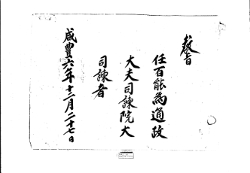 教旨
任百能為通政
大夫司諫院大
司諫者
咸豐六年十二月二十七日